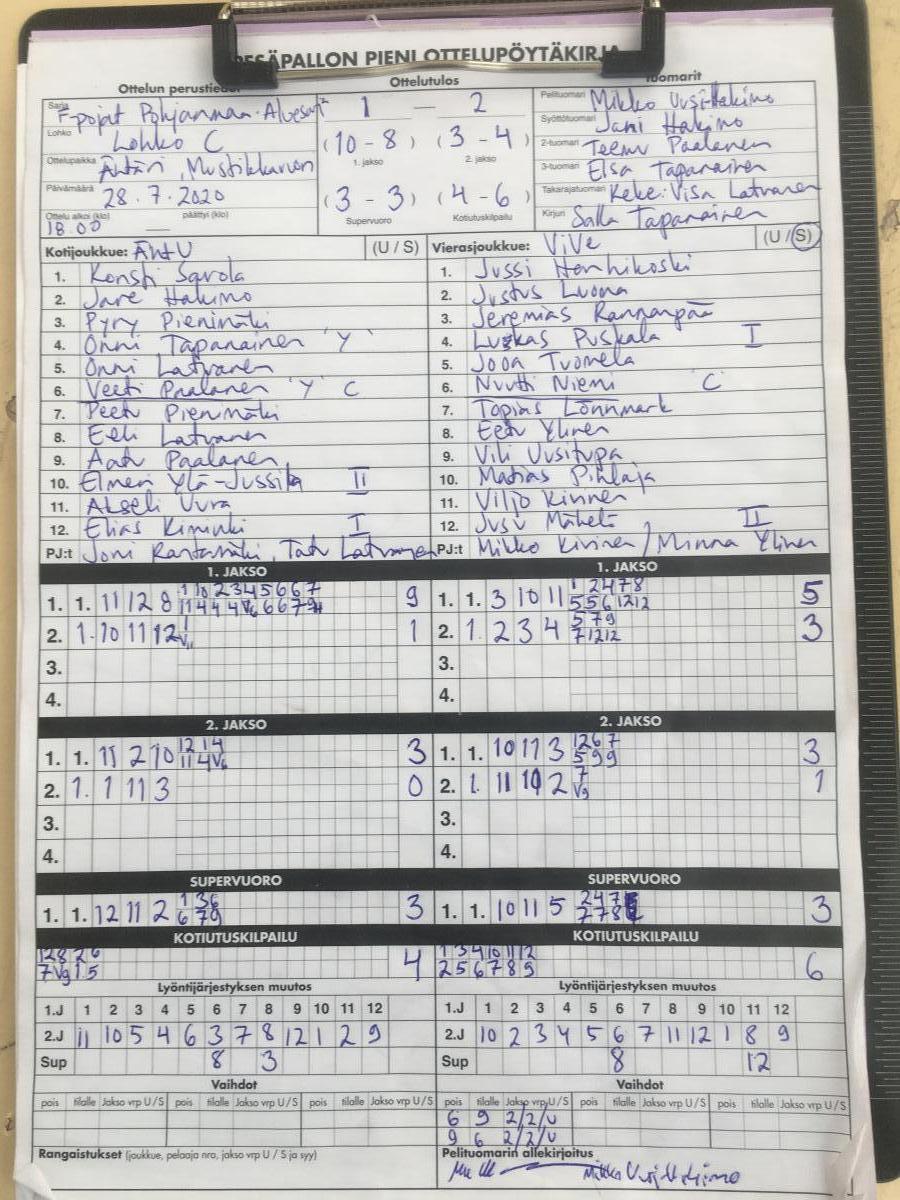 PESÄPALLON PIENI OTTELUPÖYTÄKIRJA
Ottelun perustiedot
Ottelutulos
Tuomarit
Sarja F-pojat Pohjanmaa
1 — 2
Pelituomari Mikko Uusi-Hakimo
Lohko Lohko C
(10 - 8) (3 - 4)
1. jakso 2. jakso
Syöttötuomari Jani Hakimo
2-tuomari Teemu Paalanen
Ottelupaikka Ähtäri,
3-tuomari Elsa Tapanainen
Päivämäärä 28.7.2020
(3 - 3) (4 - 6)
Supervuoro Kotiutuskilpailu
Takarajatuomari Keke-Visa Latvanen
Ottelu alkoi (klo) 18.00 päättyi (klo) —
Kirjuri Salla Tapanainen
Kotijoukkue: ÄhtU (U / S)
Vierasjoukkue: ViVe (U / S)
1. Konsti Savola
1. Jussi Hanhikoski
2. Jare Hakimo
2. Justus Luoma
3. Pyry Pienimäki
3. Jeremias Rannanpää
4. Onni Tapanainen 'Y'
4. Luukas Puskala I
5. Onni Latvanen
5. Joona Tuomela
6. Veeti Paalanen 'Y' C
6. Nuutti Niemi C
7. Peetu Pienimäki
7. Topias Lönnmark
8. Eeli Latvanen
8. Eetu Ylinen
9. Aatu Paalanen
9. Vili Uusitupa
10. Elmeri Ylä-Jussila II
10. Matias Pihlaja
11. Akseli Uura
11. Viljo Kivinen
12. Elias Kiminki I
12. Jusu Mäkelä II
PJ:t Joni Rantamäki, Tatu Latvanen
PJ:t Mikko Kivinen / Minna Ylinen
1. JAKSO
1. JAKSO
1. 1. 11 12 8 9
1. 1. 3 10 11 5
2. 1. 10 11 12 1
2. 1. 2 3 4 5 7 9 3
7 12 12
3.
3.
4.
4.
2. JAKSO
2. JAKSO
1. 1. 11 2 10 3
1. 1. 10 11 3 1 2 6 7 3
5 9 9
2. 1. 1 11 3 0
2. 1. 11 10 2 7 1
V9
3.
3.
4.
4.
SUPERVUORO
SUPERVUORO
1. 1. 12 11 2 1 3 6 3
6 7 9
1. 1. 10 11 5 2 4 7 3
KOTIUTUSKILPAILU
KOTIUTUSKILPAILU
12 8 2 6 4
7 V9 1 5
1 3 4 10 11 12 6
2 5 6 7 8 9
Lyöntijärjestyksen muutos
Lyöntijärjestyksen muutos
1.J 1 2 3 4 5 6 7 8 9 10 11 12
1.J 1 2 3 4 5 6 7 8 9 10 11 12
2.J 11 10 5 4 6 3 7 8 12 1 2 9
2.J 10 2 3 4 5 6 7 11 12 1 8 9
Sup 8 3
Sup 8 12
Vaihdot
Vaihdot
pois tilalle Jakso vrp U / S pois tilalle Jakso vrp U / S pois tilalle Jakso vrp U / S
pois tilalle Jakso vrp U / S pois tilalle Jakso vrp U / S pois tilalle Jakso vrp U / S
6 9 2/2/U
9 6 2/2/U
Rangaistukset (joukkue, pelaaja nro, jakso vrp U / S ja syy)
Pelituomarin allekirjoitus